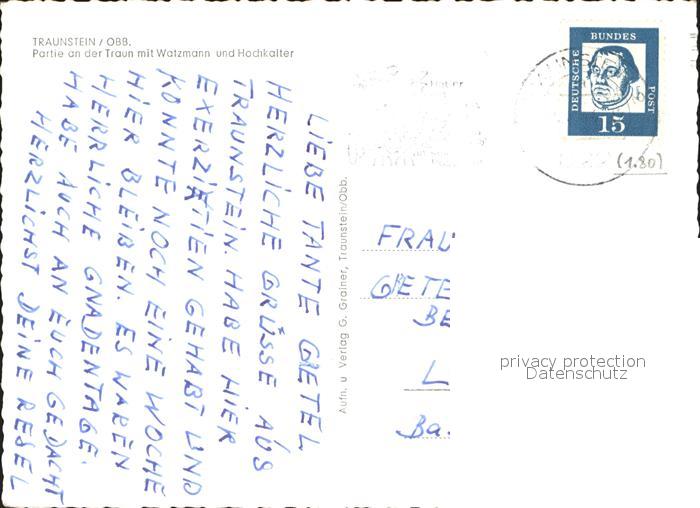 TRAUNSTEIN / OBB.
Partie an der Traun mit Watzmann und Hochkalter
LIEBE TANTE GRETEL
HERZLICHE GRÜSSE AUS
TRAUNSTEIN. HABE HIER
EXERZITIEN GEHABT UND
KONNTE NOCH EINE WOCHE
HIER BLEIBEN. ES WAREN
HERRLICHE GNADENTAGE.
HABE AUCH AN EUCH GEDACHT
HERZLICHST DEINE RESEL
Aufn. u Verlag G. Grainer, Traunstein/Obb.
DEUTSCHE BUNDES POST
15
(1.80)
FRAU
GRETE
BE
L
Ba.
privacy protection
Datenschutz